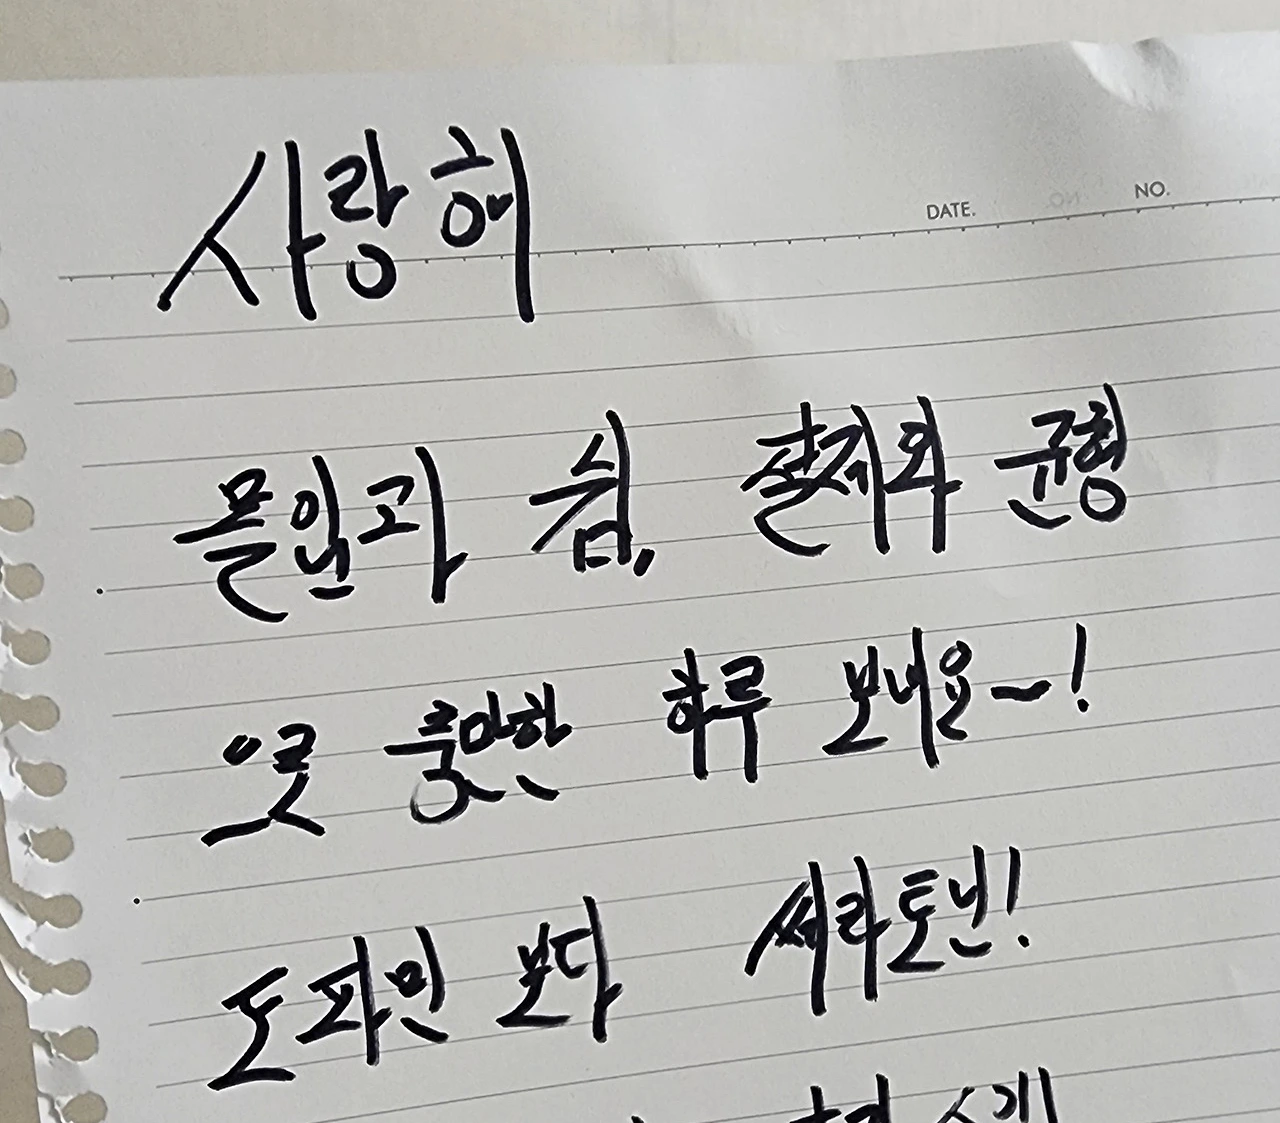 사랑해
DATE. NO.
몰입과 쉼, 절제와 균형
으로 충만한 하루 보내요~!
도파민 보다 쎄라토닌!
소개